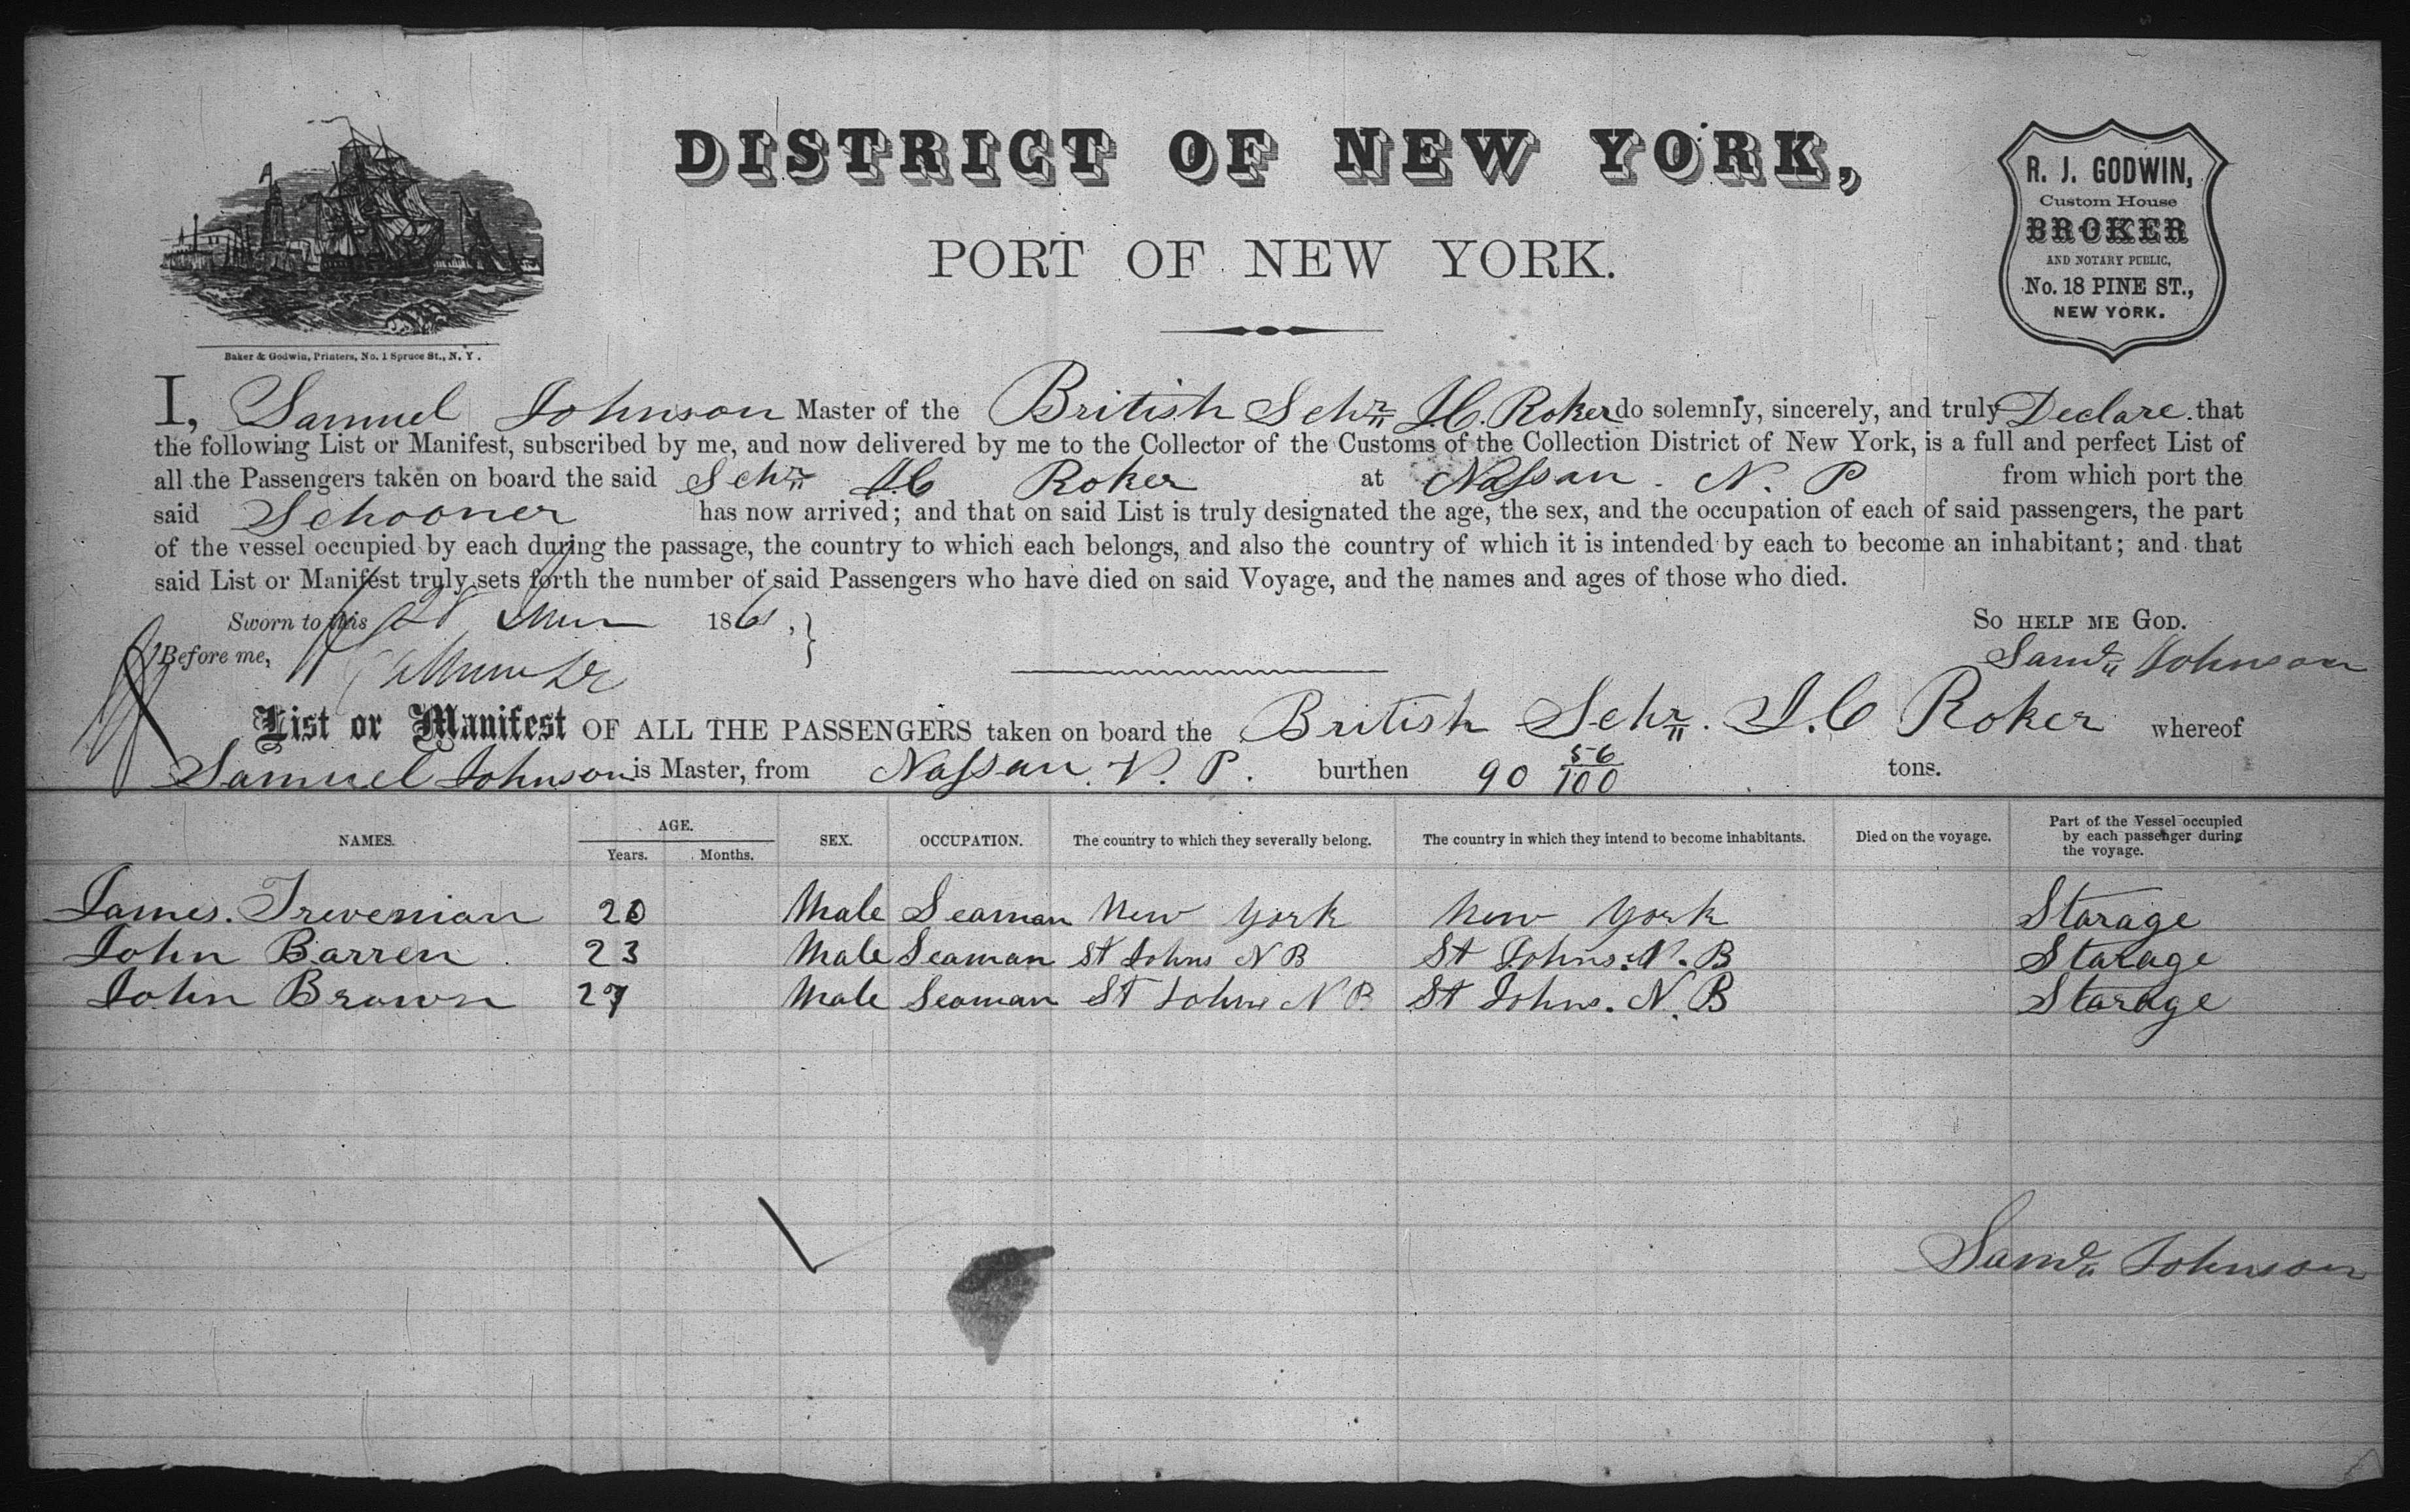 DISTRICT OF NEW YORK,
PORT OF NEW YORK.
R. J. GODWIN,
Custom House
BROKER
AND NOTARY PUBLIC,
No. 18 PINE ST.,
NEW YORK.
Baker & Godwin, Printers, No. 1 Spruce St., N. Y.
I, Samuel Johnson Master of the British Schr J.C. Roker do solemnly, sincerely, and truly Declare that
the following List or Manifest, subscribed by me, and now delivered by me to the Collector of the Customs of the Collection District of New York, is a full and perfect List of
all the Passengers taken on board the said Schr J.C Roker at Nassau. N. P from which port the
said Schooner has now arrived; and that on said List is truly designated the age, the sex, and the occupation of each of said passengers, the part
of the vessel occupied by each during the passage, the country to which each belongs, and also the country of which it is intended by each to become an inhabitant; and that
said List or Manifest truly sets forth the number of said Passengers who have died on said Voyage, and the names and ages of those who died.
Sworn to this 186 ,
So HELP ME GOD.
Before me,
Saml Johnson
List or Manifest OF ALL THE PASSENGERS taken on board the British Schr. J.C Roker whereof
Samuel Johnson is Master, from Nassau. N. P. burthen 90 56/100 tons.
NAMES. AGE. Years. Months. SEX. OCCUPATION. The country to which they severally belong. The country in which they intend to become inhabitants. Died on the voyage. Part of the Vessel occupied by each passenger during the voyage.
James. Trevenian 20 Male Seaman New York New York Starage
John Barren 23 Male Seaman St Johns N B St Johns. N. B Starage
John Brown 27 Male Seaman St Johns N B. St Johns. N. B Starage
Saml Johnson